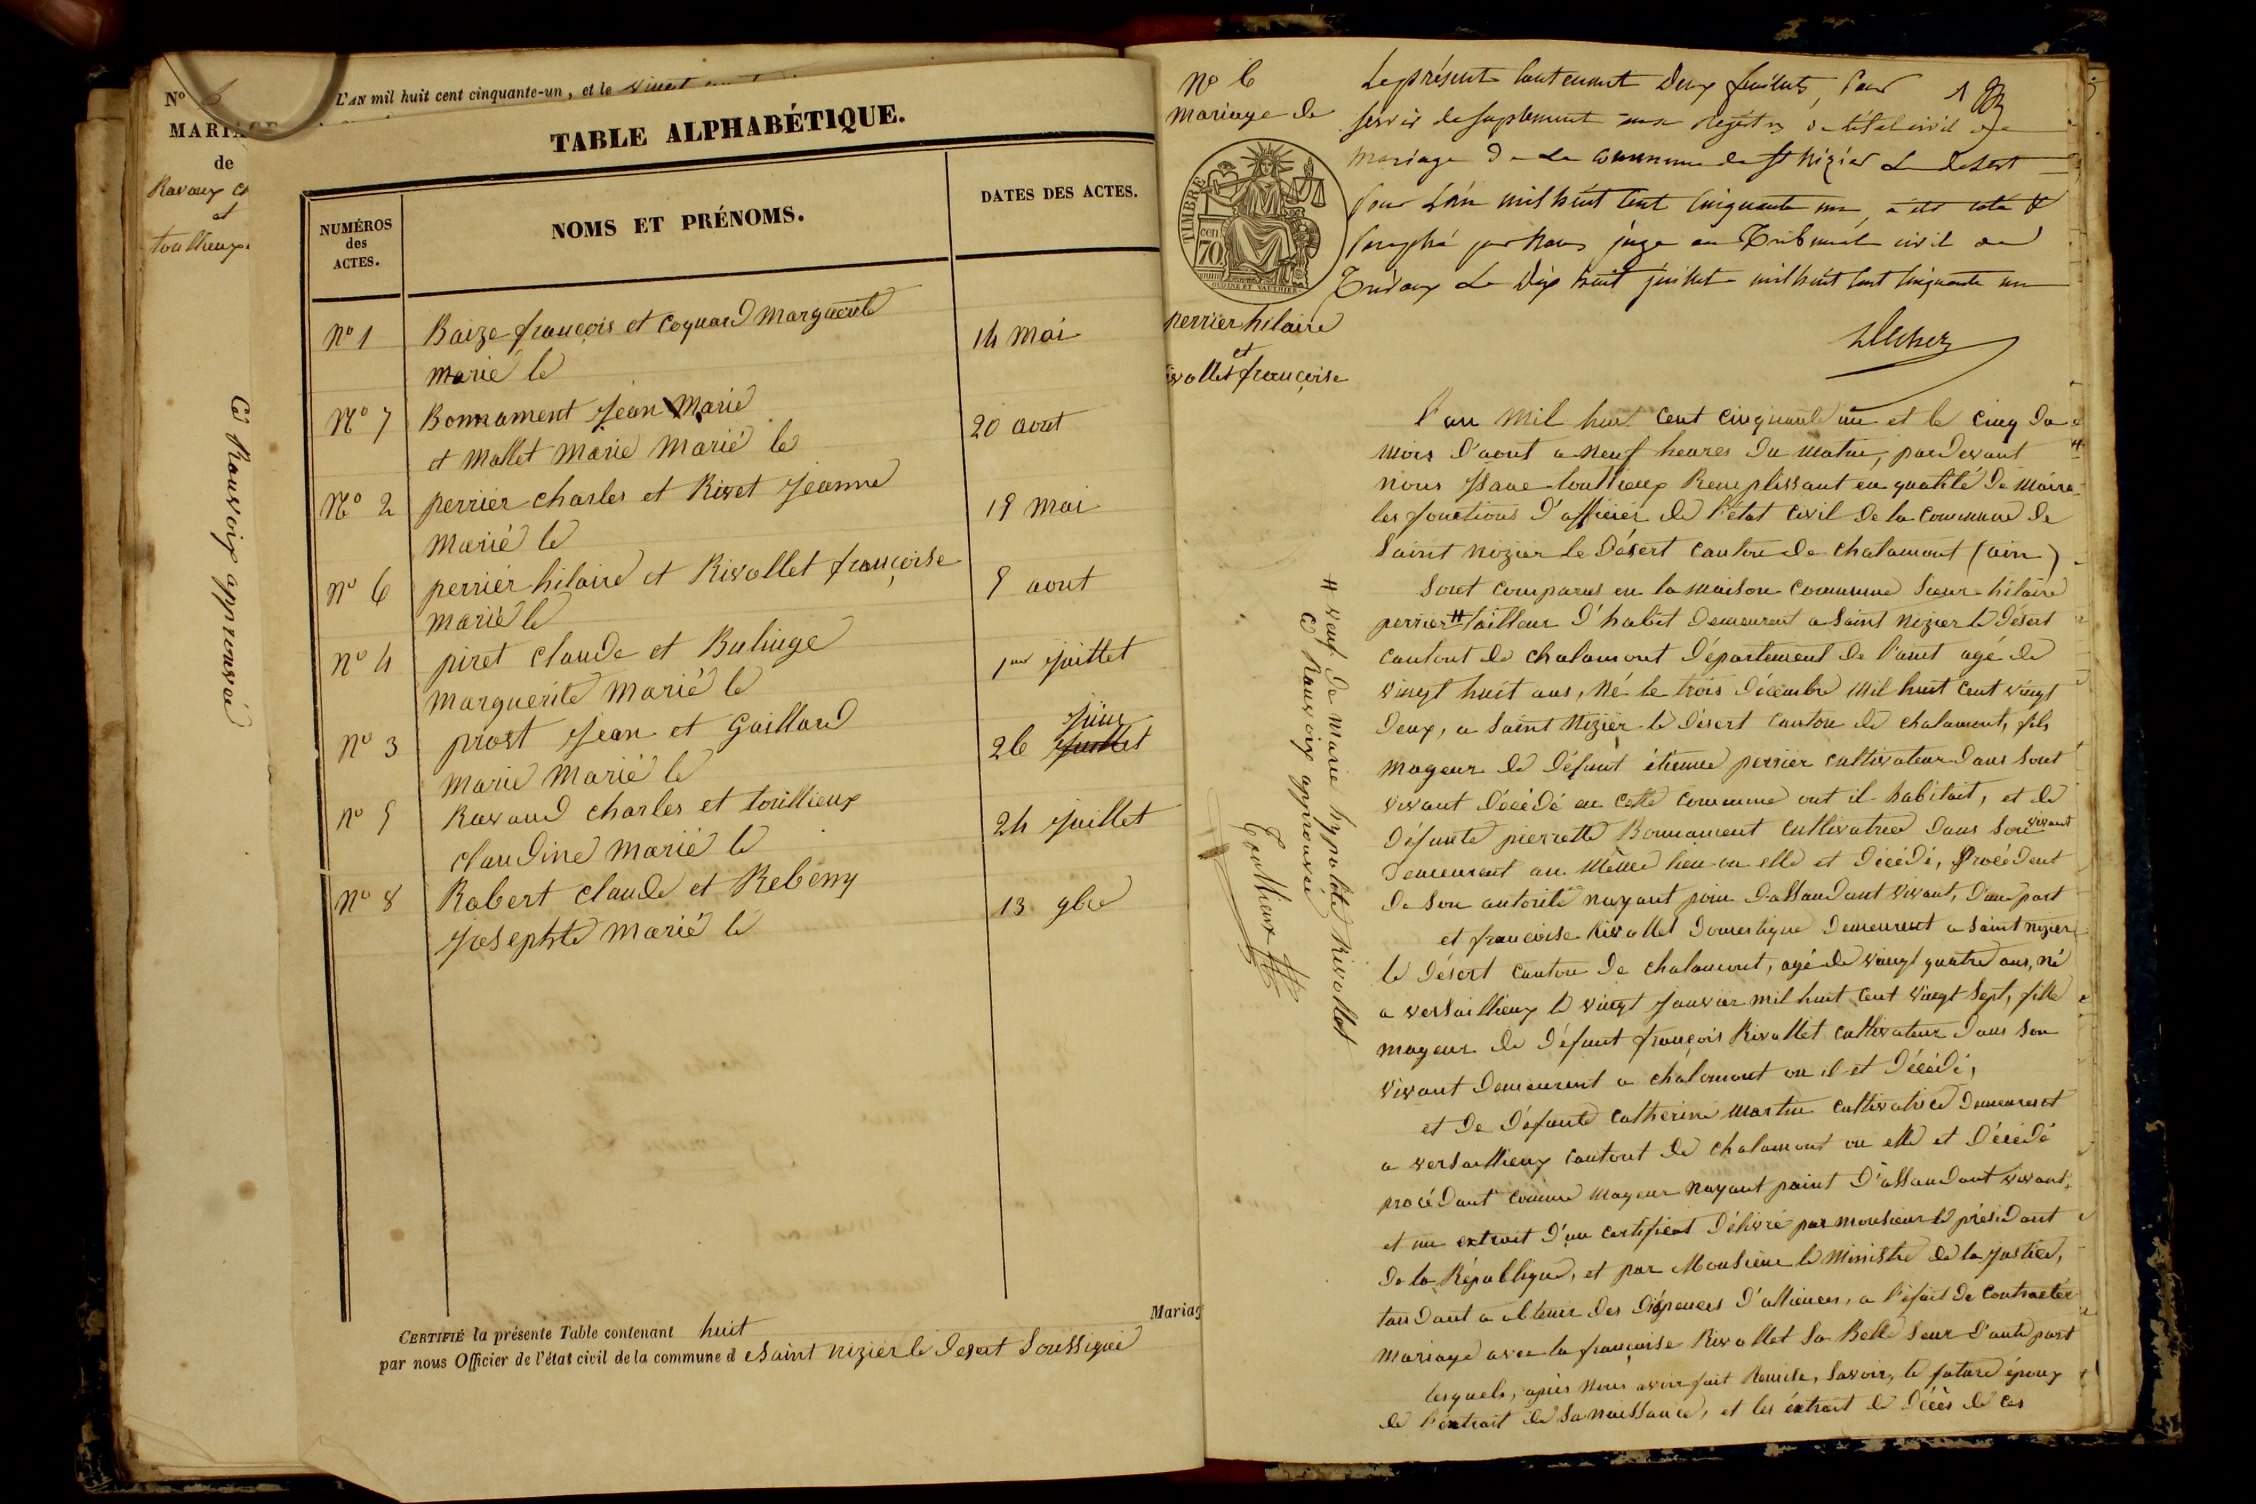 N° 5
L'AN mil huit cent cinquante-un, et le vingt
MARIAGE
de
Ravaux
et
toullieux
Ce Ranvoix approuvée
TABLE ALPHABÉTIQUE.
NUMÉROS
des
ACTES.
NOMS ET PRÉNOMS.
DATES DES ACTES.
N° 1 Baize françois et Coquard Marguerite 14 Mai
Marié le
N° 7 Bonnament Jean Marie 20 aout
et Mallet Marie Marié le
N° 2 perrier charles et Rivet Jeanne 19 Mai
Marié le
N° 6 perrier hilaire et Rivollet françoise 5 aout
Marié le
N° 4 piret claude et Bulinge 1er Juillet
Marguerite Marié le
N° 3 prost Jean et Gaillard 26 Juillet Juin
Marie Marié le
N° 5 Ravaud charles et toullieux 24 Juillet
claudine Marié le
N° 8 Robert claude et Rebeny 13 9bre
Josephte Marié le
CERTIFIÉ la présente Table contenant huit
Mariag
par nous Officier de l'état civil de la commune d e Saint nizier le Desert Soussigné
N° 6
Mariage de
TIMBRE
70 cen
OUDINÉ ET VAUTHIER
perrier hilaire
et
rivollet françoise
Le présent contenant deux feuillets, pour 1
servir de suplement aux régistres de l'état civil de
mariage de la commune de St Nizier Le desert
pour L'an mil huit cent cinquante un, a été coté &
paraphé par nous juge au Tribunal civil de
Trévoux Le dix huit juillet mil huit cent cinquante un
l'an Mil huit cent cinquante un et le cinq du
mois d'aout a Neuf heures du matin, pardevant
nous toullieux Remplissant en qualité de Maire
les fonctions d'officier de l'état civil de la commune de
Saint Nizier le Désert canton de chalamont (ain)
Sont comparus en la maison commune Sieur hilaire
perrier # tailleur d'habit demeurent a Saint Nizier le Désert
cantont de chalamont département de l'aint agé de
vingt huit ans, Né le trois décembre Mil huit Cent vingt
Deux, a Saint Nizier le Désert canton de chalamont, fils
mageur de défunt étienne perrier cultivateur dans Sont
vivant décédé en cette commune ont il habitait, et de
Défunte pierrette Bonnament cultivatrice dans Son vivant
demeurent au Même lieu ou elle et décédé, procédent
de Son autorité nayant poin dassandant vivant, d'une part
et françoise Rivollet Domestique demeurent a Saint nizier
le Désert canton de chalamont, agé de vingt quatre ans, né
a versaillieux le vingt Janvier mil huit Cent vingt sept, fille
mageur de défunt françois Rivollet cultivateur dans Son
vivant demeurent a chalamont ou il et décédé,
et de défunte catherine martin cultivatrice demeurent
a versaillieux cantont de chalamont ou elle et décédé
procédant comme mageur nayant point d'assandant vivant,
et un extrait d'un certificat délivré par monsieur le présidant
de la République, et par Monsieur le Ministre de la Justice,
tandant a obtenir des dispences d'alliences, a l'éfait de contracter
mariage avec la françoise Rivollet Sa Belle Seur d'aute part
lesquels, apiès Nous avoir fait Remise, Savoir, le future époux
de l'extrait de Sa naissance, et les extrait de décès de ces
# veuf de Marie hypolite Rivollet
Ce Ranvoix approuvée
Toullieux